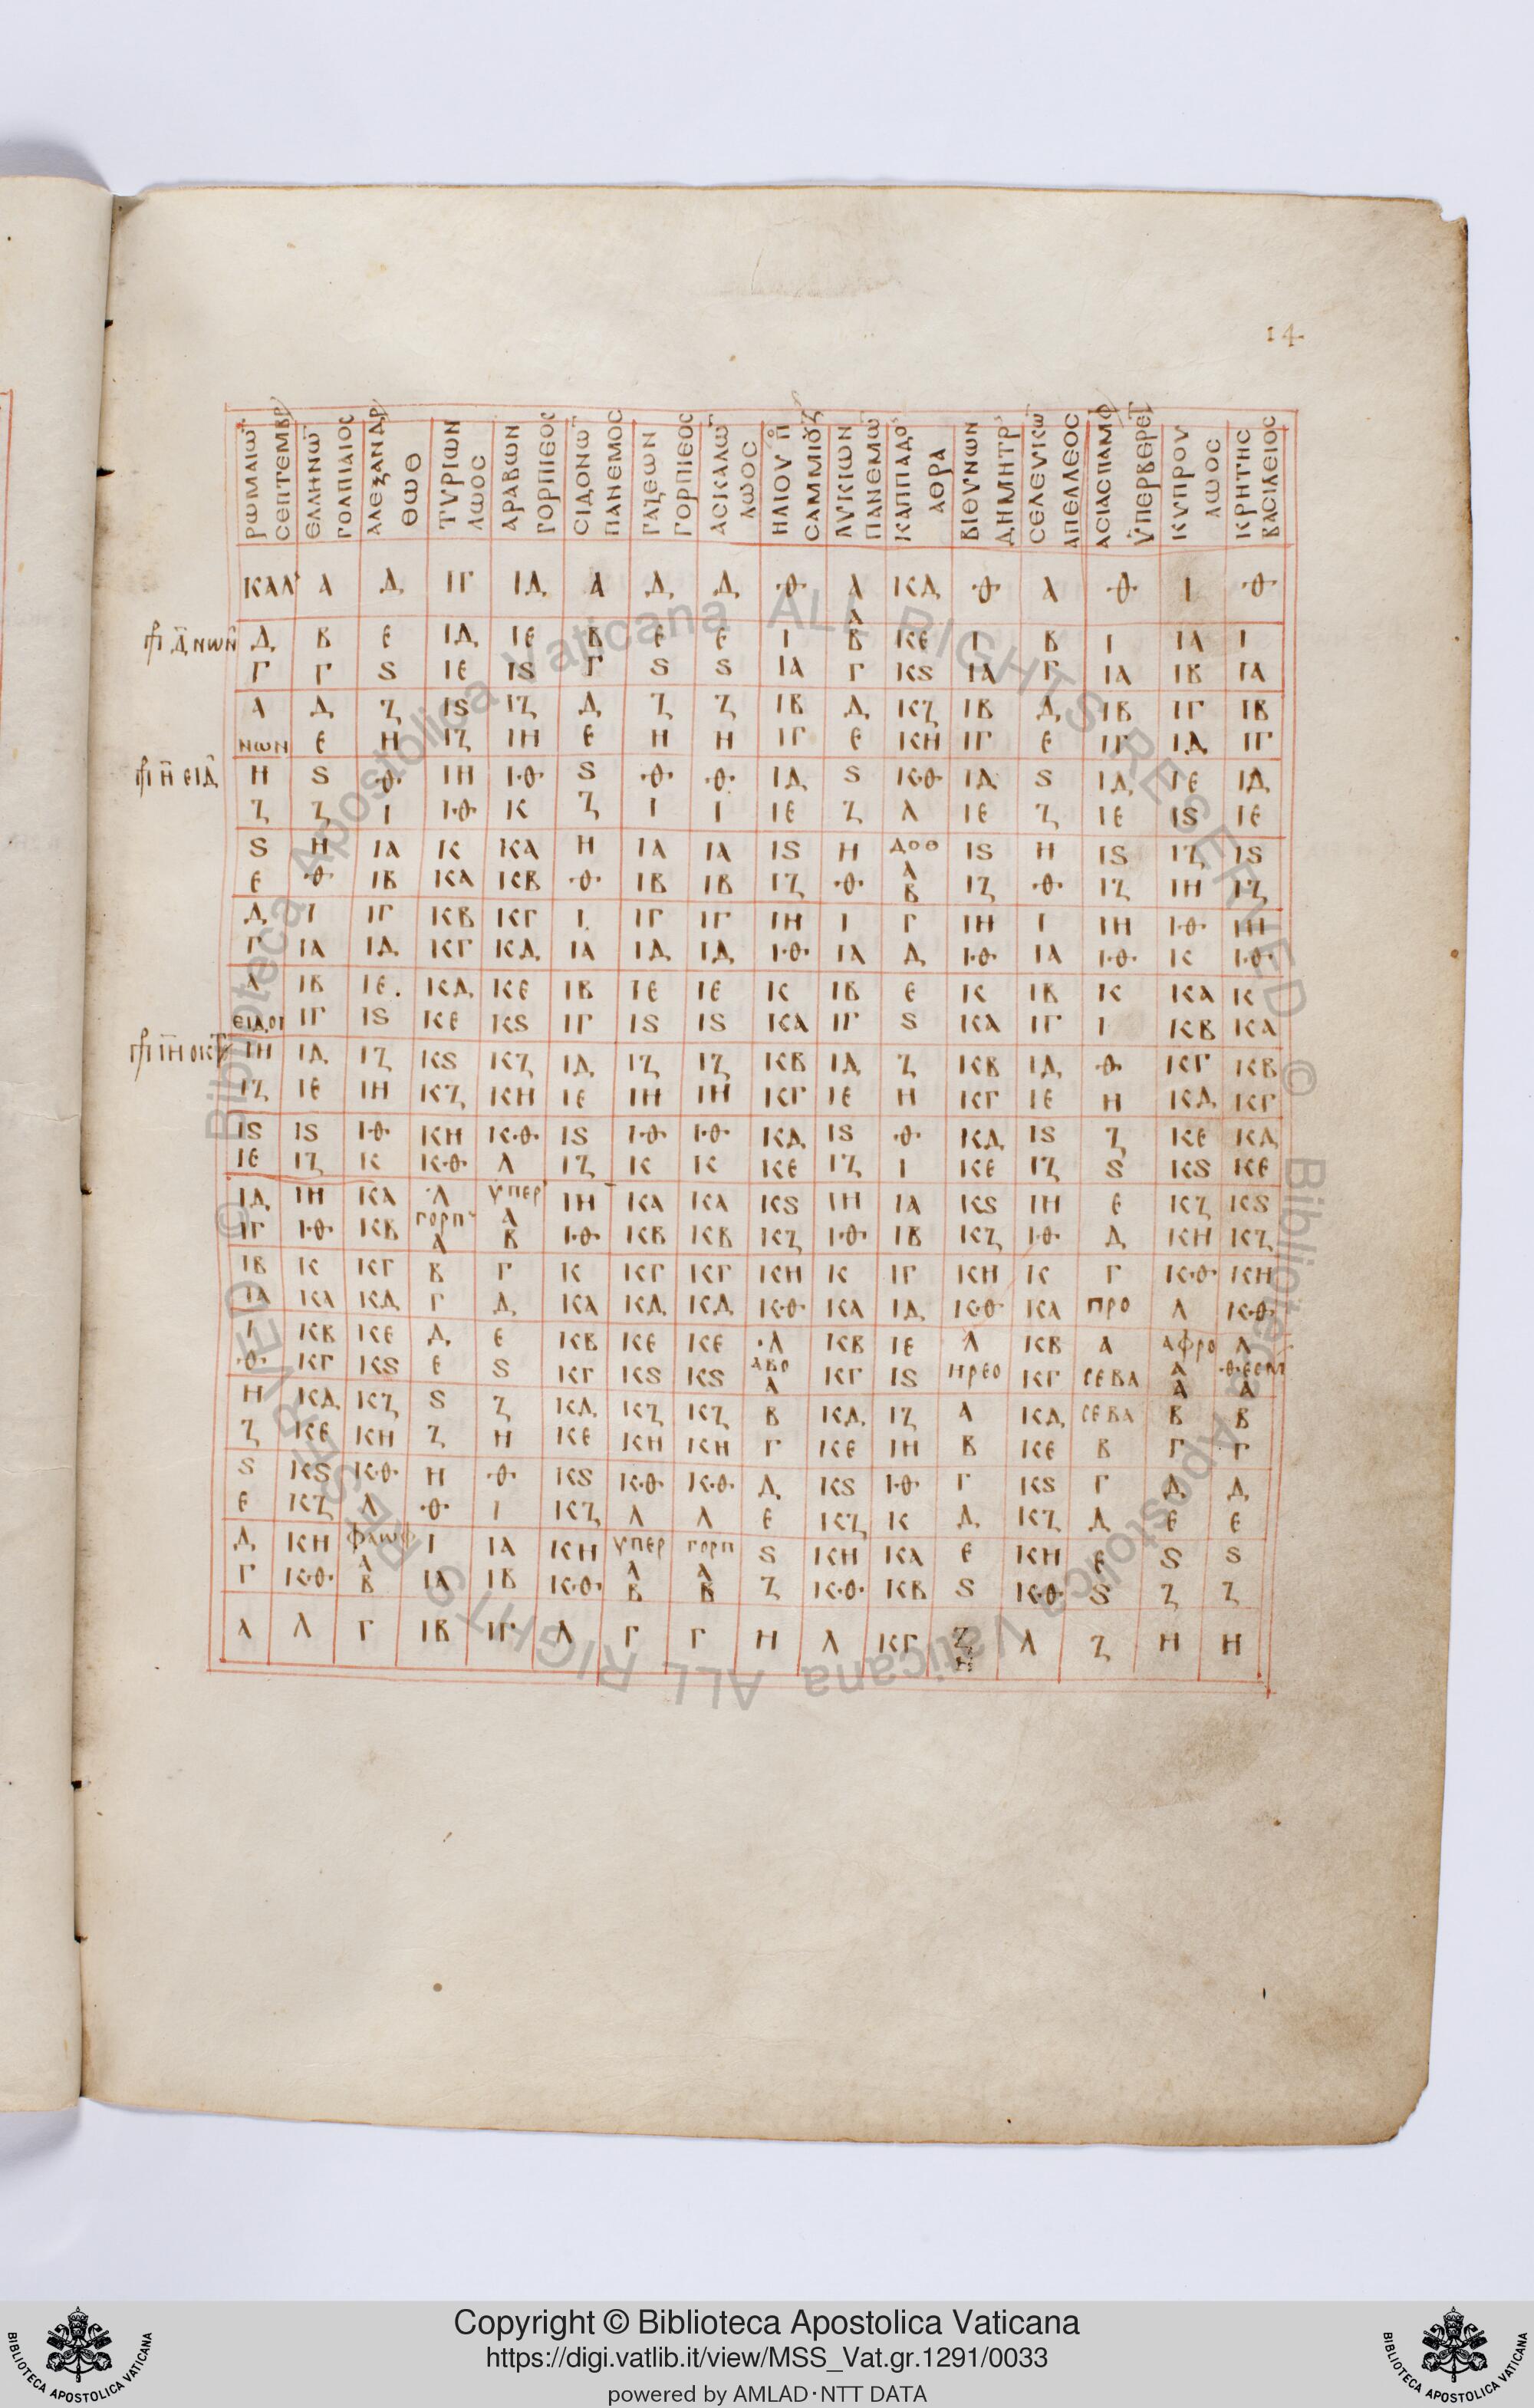 14
ΡΩΜΑΙΩΝ ΕΛΛΗΝΩ ΑΛΕΞΑΝΔΡ ΤΥΡΙΩΝ ΑΡΑΒΩΝ ΣΙΔΟΝΩ ΓΑΖΕΩΝ ΑΣΚΑΛΩ ΗΛΙΟΥ Π ΛΥΚΙΩΝ ΚΑΠΠΑΔΟ ΒΙΘΥΝΩΝ ΣΕΛΕΥΚΙΩ ΑΣΙΑΣΠΑΜΦ ΚΥΠΡΟΥ ΚΡΗΤΗΣ
ΣΕΠΤΕΜΒΡ ΓΟΛΠΙΑΙΟΣ ΘΩΘ ΛΩΟΣ ΓΟΡΠΙΕΟΣ ΠΑΝΕΜΟΣ ΓΟΡΠΙΕΟΣ ΛΩΟΣ ΣΑΜΜΙΟΖ ΠΑΝΕΜΩ ΑΘΡΑ ΔΗΜΗΤΡ ΑΠΕΛΛΕΟΣ ΥΠΕΡΒΕΡΕΤ ΛΩΟΣ ΒΑΣΙΛΕΙΟΣ
ΚΑΛ Α Δ ΙΓ ΙΔ Α Δ Δ Θ Α ΚΔ Θ Α Θ Ι Θ
Δ ΝΩΝ Δ Β Ε ΙΔ ΙΕ Β Ε Ε Ι Α Β ΚΕ Ι Β Ι ΙΑ Ι
Γ Γ Ϛ ΙΕ ΙϚ Γ Ϛ Ϛ ΙΑ Γ ΚϚ ΙΑ Γ ΙΑ ΙΒ ΙΑ
Α Δ Ζ ΙϚ ΙΖ Δ Ζ Ζ ΙΒ Δ ΚΖ ΙΒ Δ ΙΒ ΙΓ ΙΒ
ΝΩΝ Ε Η ΙΖ ΙΗ Ε Η Η ΙΓ Ε ΚΗ ΙΓ Ε ΙΓ ΙΔ ΙΓ
Η ΕΙΔ Η Ϛ Θ ΙΗ ΙΘ Ϛ Θ Θ ΙΔ Ϛ ΚΘ ΙΔ Ϛ ΙΔ ΙΕ ΙΔ
Ζ Ζ Ι ΙΘ Κ Ζ Ι Ι ΙΕ Ζ Λ ΙΕ Ζ ΙΕ ΙϚ ΙΕ
Ϛ Η ΙΑ Κ ΚΑ Η ΙΑ ΙΑ ΙϚ Η ΔΟΘ Α ΙϚ Η ΙϚ ΙΖ ΙϚ
Ε Θ ΙΒ ΚΑ ΚΒ Θ ΙΒ ΙΒ ΙΖ Θ Β ΙΖ Θ ΙΖ ΙΗ ΙΖ
Δ Ι ΙΓ ΚΒ ΚΓ Ι ΙΓ ΙΓ ΙΗ Ι Γ ΙΗ Ι ΙΗ ΙΘ ΙΗ
Γ ΙΑ ΙΔ ΚΓ ΚΔ ΙΑ ΙΔ ΙΔ ΙΘ ΙΑ Δ ΙΘ ΙΑ ΙΘ Κ ΙΘ
Α ΙΒ ΙΕ ΚΔ ΚΕ ΙΒ ΙΕ ΙΕ Κ ΙΒ Ε Κ ΙΒ Κ ΚΑ Κ
ΕΙΔΟΙ ΙΓ ΙϚ ΚΕ ΚϚ ΙΓ ΙϚ ΙϚ ΚΑ ΙΓ Ϛ ΚΑ ΙΓ Ι ΚΒ ΚΑ
ΙΗ ΟΚΤ ΙΗ ΙΔ ΙΖ ΚϚ ΚΖ ΙΔ ΙΖ ΙΖ ΚΒ ΙΔ Ζ ΚΒ ΙΔ Θ ΚΓ ΚΒ
ΙΖ ΙΕ ΙΗ ΚΖ ΚΗ ΙΕ ΙΗ ΙΗ ΚΓ ΙΕ Η ΚΓ ΙΕ Η ΚΔ ΚΓ
ΙϚ ΙϚ ΙΘ ΚΗ ΚΘ ΙϚ ΙΘ ΙΘ ΚΔ ΙϚ Θ ΚΔ ΙϚ Ζ ΚΕ ΚΔ
ΙΕ ΙΖ Κ ΚΘ Λ ΙΖ Κ Κ ΚΕ ΙΖ Ι ΚΕ ΙΖ Ϛ ΚϚ ΚΕ
ΙΔ ΙΗ ΚΑ Λ ΥΠΕΡ Α ΙΗ ΚΑ ΚΑ ΚϚ ΙΗ ΙΑ ΚϚ ΙΗ Ε ΚΖ ΚϚ
ΙΓ ΙΘ ΚΒ ΓΟΡΠ Α Β ΙΘ ΚΒ ΚΒ ΚΖ ΙΘ ΙΒ ΚΖ ΙΘ Δ ΚΗ ΚΖ
ΙΒ Κ ΚΓ Β Γ Κ ΚΓ ΚΓ ΚΗ Κ ΙΓ ΚΗ Κ Γ ΚΘ ΚΗ
ΙΑ ΚΑ ΚΔ Γ Δ ΚΑ ΚΔ ΚΔ ΚΘ ΚΑ ΙΔ ΚΘ ΚΑ ΠΡΟ Λ ΚΘ
Ι ΚΒ ΚΕ Δ Ε ΚΒ ΚΕ ΚΕ Λ ΚΒ ΙΕ Λ ΚΒ Α ΑΦΡΟ Λ
Θ ΚΓ ΚϚ Ε Ϛ ΚΓ ΚϚ ΚϚ ΑΒΟ Α ΚΓ ΙϚ ΗΡΕΟ ΚΓ ΣΕΒΑ Α Α ΘΕΣΜ Α
Η ΚΔ ΚΖ Ϛ Ζ ΚΔ ΚΖ ΚΖ Β ΚΔ ΙΖ Α ΚΔ ΣΕΒΑ Β Β
Ζ ΚΕ ΚΗ Ζ Η ΚΕ ΚΗ ΚΗ Γ ΚΕ ΙΗ Β ΚΕ Β Γ Γ
Ϛ ΚϚ ΚΘ Η Θ ΚϚ ΚΘ ΚΘ Δ ΚϚ ΙΘ Γ ΚϚ Γ Δ Δ
Ε ΚΖ Λ Θ Ι ΚΖ Λ Λ Ε ΚΖ Κ Δ ΚΖ Δ Ε Ε
Δ ΚΗ ΦΑΩΦ Α Ι ΙΑ ΚΗ ΥΠΕΡ Α ΓΟΡΠ Α Ϛ ΚΗ ΚΑ Ε ΚΗ Ε Ϛ Ϛ
Γ ΚΘ Β ΙΑ ΙΒ ΚΘ Β Β Ζ ΚΘ ΚΒ Ϛ ΚΘ Ϛ Ζ Ζ
Α Λ Γ ΙΒ ΙΓ Λ Γ Γ Η Λ ΚΓ Ζ Η Λ Ζ Η Η
© Biblioteca Apostolica Vaticana ALL RIGHTS RESERVED © Biblioteca Apostolica Vaticana ALL RIGHTS RESERVED
Copyright © Biblioteca Apostolica Vaticana
https://digi.vatlib.it/view/MSS_Vat.gr.1291/0033
powered by AMLAD·NTT DATA
BIBLIOTECA APOSTOLICA VATICANA
BIBLIOTECA APOSTOLICA VATICANA